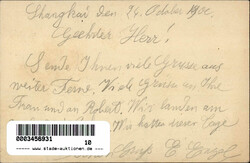 Shanghai den 24. October 1900.
Geehrter Herr!
Sende Ihnen viele Grüsse aus
weiter Ferne. Viele Grüsse an Ihre
Frau und an Robert. Wir landen am
Wir hatten
Gruss
0003456931
10
www.slade-auktionen.de